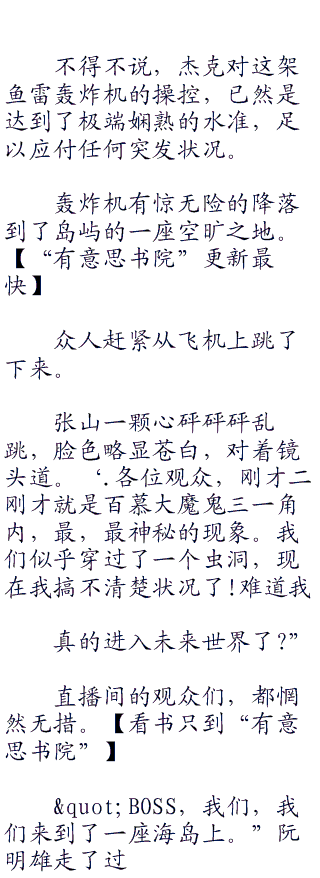 不得不说，杰克对这架
鱼雷轰炸机的操控，已然是
达到了极端娴熟的水准，足
以应付任何突发状况。
轰炸机有惊无险的降落
到了岛屿的一座空旷之地。
【“有意思书院”更新最
快】
众人赶紧从飞机上跳了
下来。
张山一颗心砰砰砰乱
跳，脸色略显苍白，对着镜
头道。‘.各位观众，刚才二
刚才就是百慕大魔鬼三一角
内，最，最神秘的现象。我
们似乎穿过了一个虫洞，现
在我搞不清楚状况了!难道我
真的进入未来世界了?”
直播间的观众们，都惘
然无措。【看书只到“有意
思书院”】
&quot;BOSS，我们，我
们来到了一座海岛上。”阮
明雄走了过